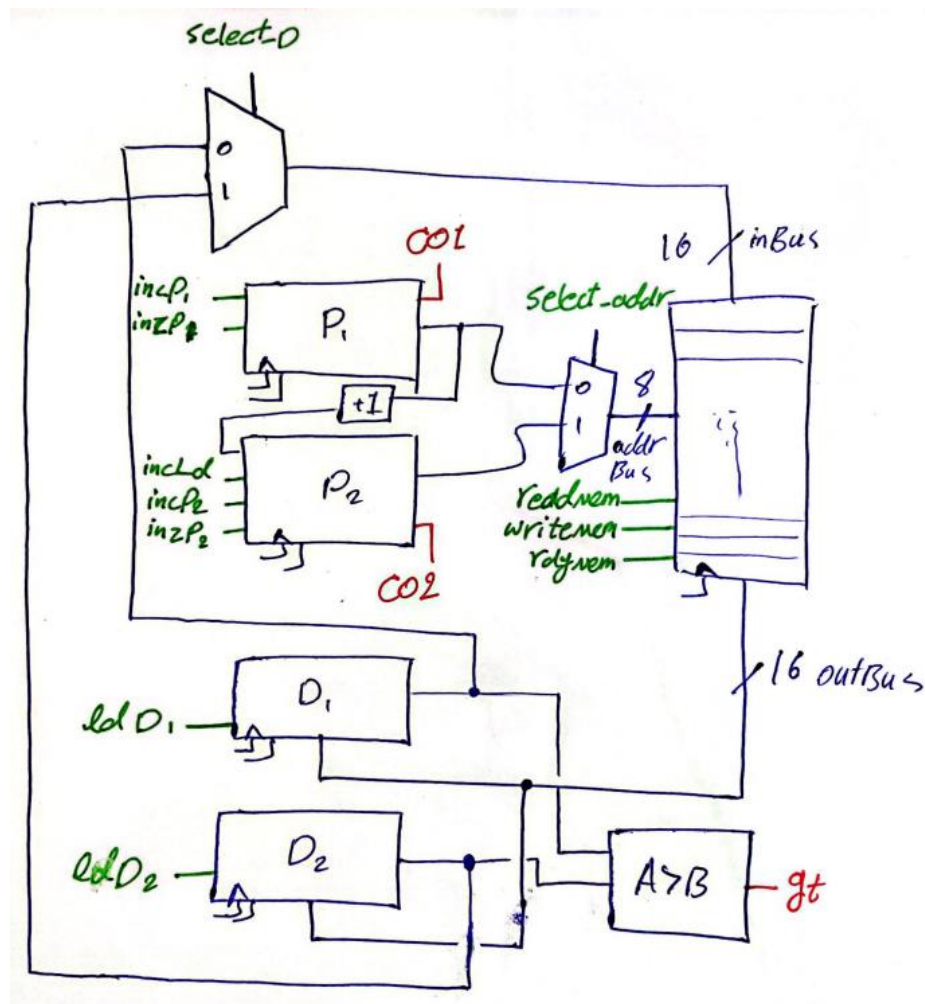 select_D
0
1
16
inBus
CO1
incP1
inzP1
P1
select_addr
0
1
8
addr
Bus
+1
incLd
incP2
inzP2
P2
CO2
readmem
writemem
rdymem
16 outBus
D1
ldD1
D2
ldD2
A>B
gt